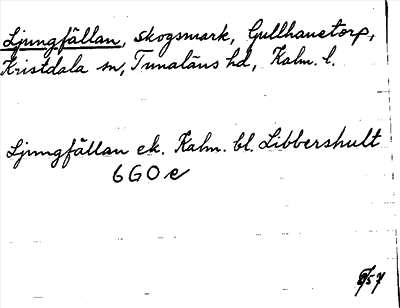 Ljungfällan, skogsmark, Gullhanetorp,
Kristdala sn, Tunaläns hd, Kalm. l.
Ljungfällan ek. Kalm. bl. Libbershult
6G0e